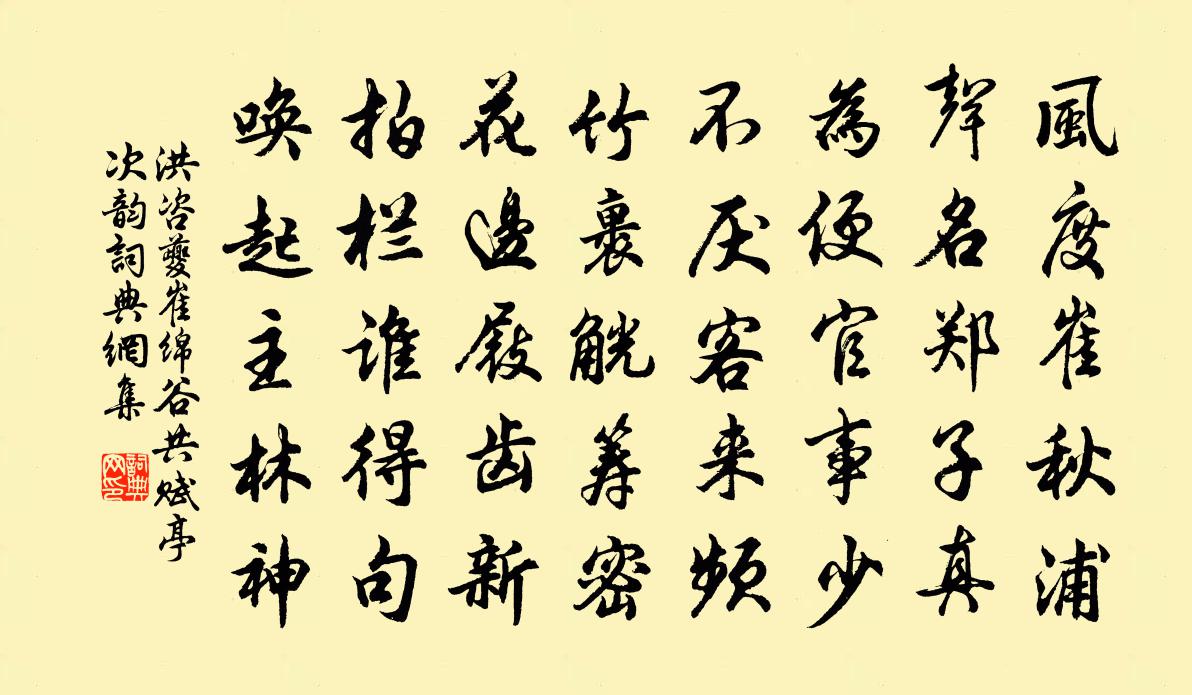 風度崔秋浦
聲名郑子真
為便官事少
不厌客来频
竹裏觥筹密
花邊屐齿新
拍栏谁得句
唤起主林神
洪咨夔崔绵谷共赋亭
次韵詞典網集
詞典
网印